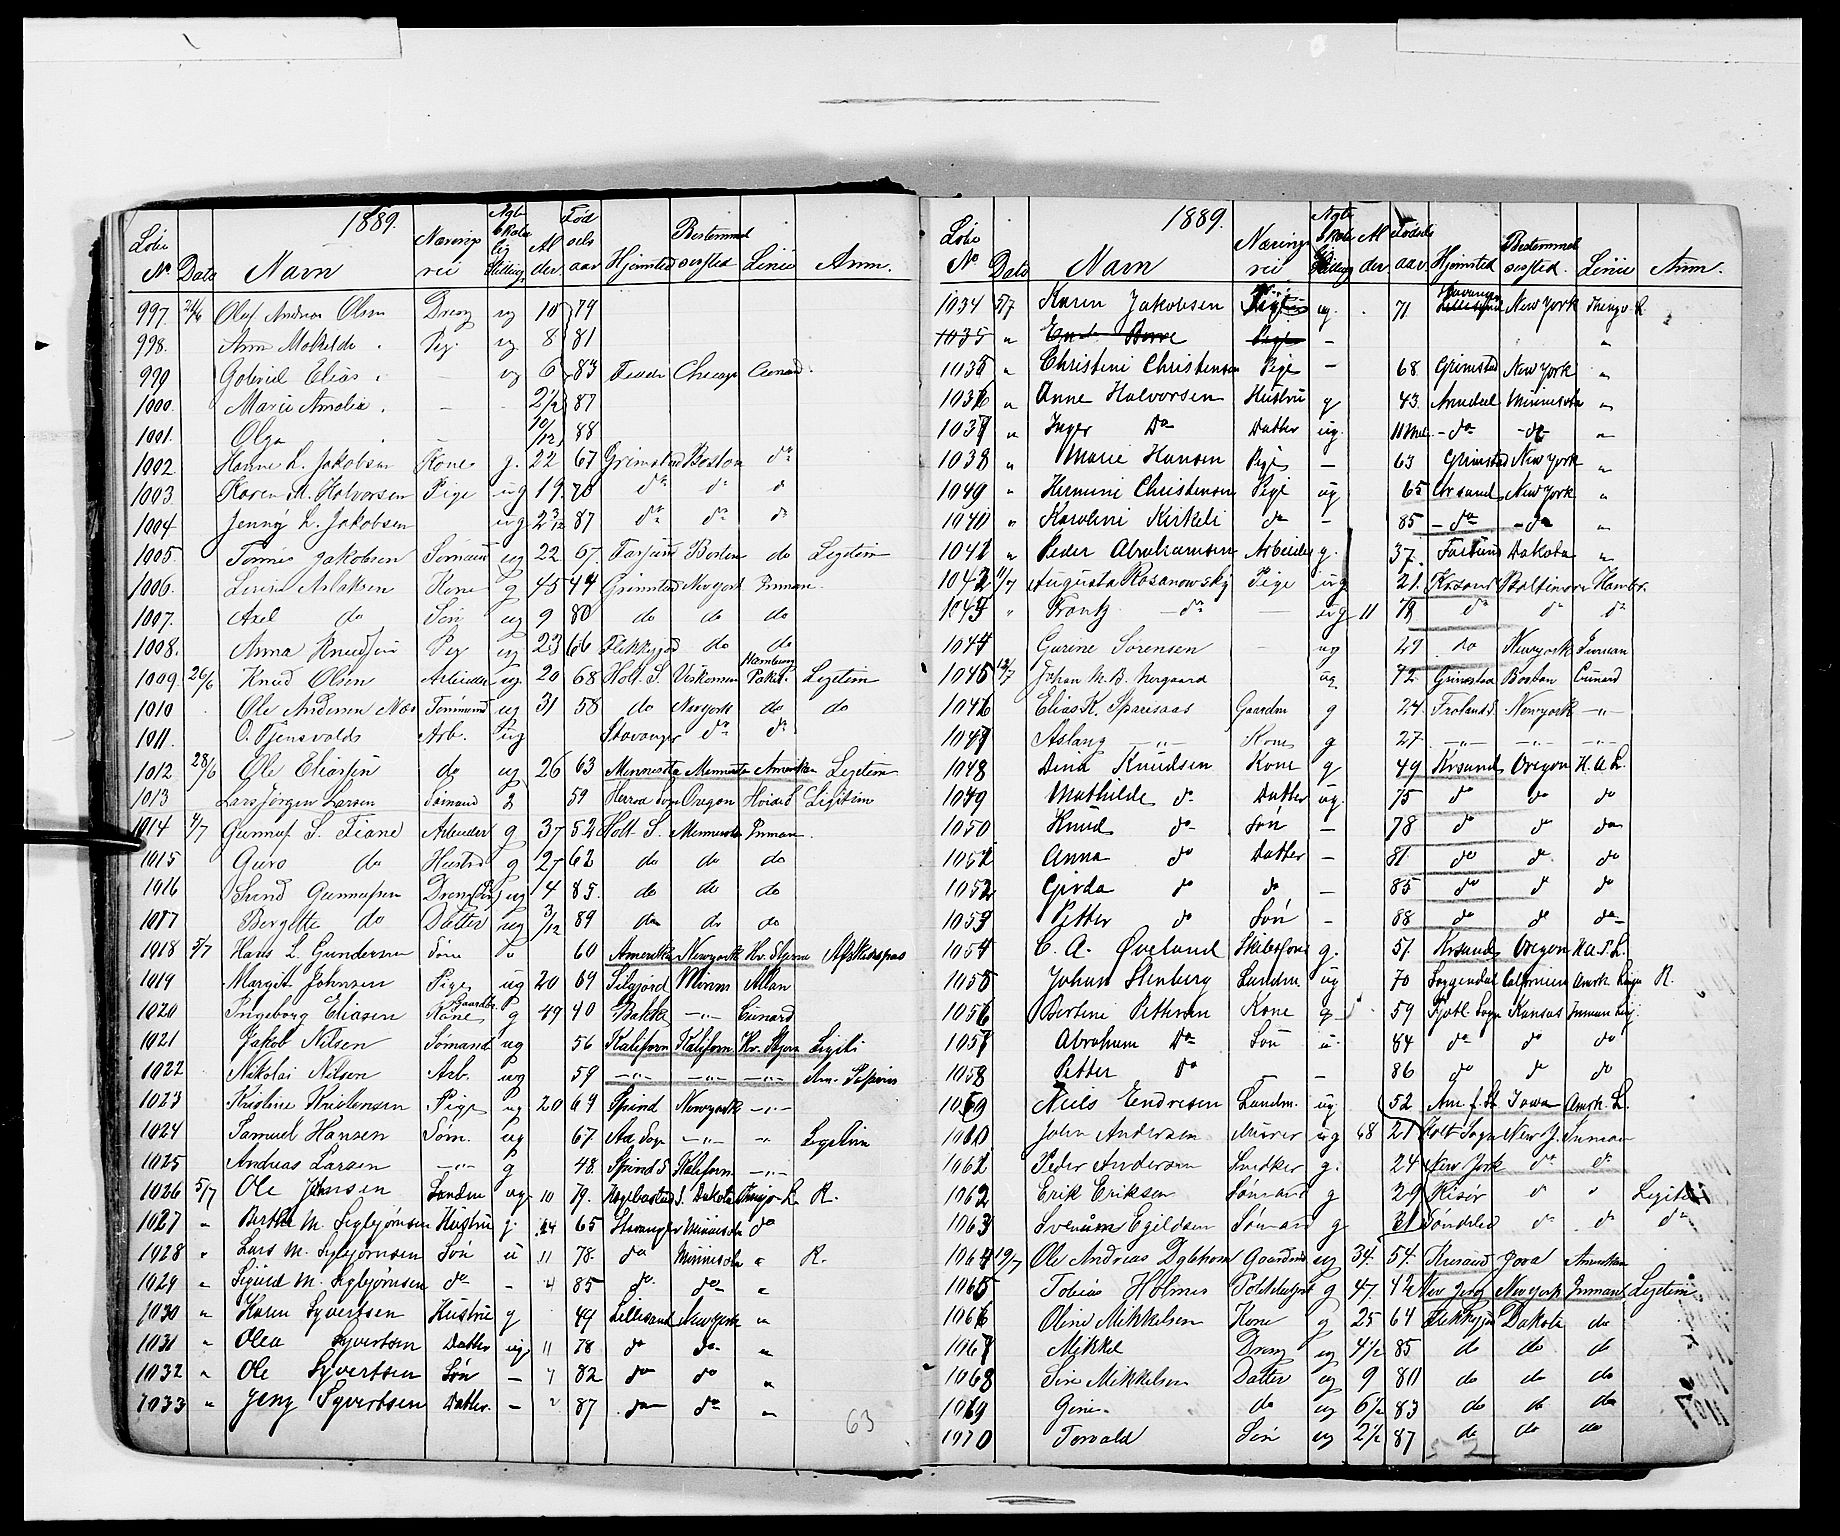 1889.
Løbe No Data Navn Nærings vei Ægte skabelig Stilling Al der Fød sels aar Hjemsted Bestemmel sessted Linie Anm.
997. 21/6 Oluf Andreas Olsen Dreng ug 10 79
998. Ann Makilde Pig. ug 8 81
999 Gabriel Elias ug 6 83 Chicago Cunard
1000. Marie Amalia - - 2 1/2 87
1001. Olga 10/12 88
1002 Hanne L. Jakobsen Kone g. 22 67 Grimstad Boston do
1003 Karen M. Halvorsen Pige ug 19 70 do do do
1004 Jenny L. Jakobsen ug 2 3/12 87 do do do
1005. Tønnes Jakobsen Sømand ug 22 67. Farsund Boston do Legitim
1006. Aslaksen Kone g 45 44 Grimstad Newyork Inman.
1007. Axel do Søn ug 9 80 do do do
1008. Anna Knudsen Pig ug 23 66 Flekkefjord do do
1009. 26/6 Knud Olsen Arbeider ug. 20 68 Holt. S. Hamburg Paket. Legitim
1010 Ole Andersen Næs Tømmmnd ug 31 58 do Newyork do do
1011. O. Tjensvolds Arb. ug Stavanger do do
1012 28/6 Ole Eliassen do ug 26 63 Minnesota Minnesota Amerikan Legitim
1013 Lars Jørgen Larsen Sømand g 59 Oregon Hvide S Legitim
1014 4/7 Gunnuf S. Fiane Arbeider g 37 52 Holt S. Minnesota Inman.
1015 Guro do Hustru g 27 62 do do do
1016 Svend Gunnufsen Dreng ug 4 85. do do do
1017 Bergitte do Datter ug 3/12 89 do do do
1018 5/7 Hans L. Gundersen 60 Amerika Newyork Hv. Stjerne Afskedspas
1019 Margit Johnsen Pige ug 20 69 Siljord Minns Allan
1020 Ingeborg Eliasen Gaardbr. Kone g 49 40 Bakke -"- Cunard
1021 Jakob Nilsen Sømand ug 56 Kaliforn Kaliforn Hv. Stjern Legiti
1022 Nikolai Nilsen Arb. ug 59 -"- -"- -"- Am. Papirer
1023 Kristine Kristensen Pige ug 20 69 Spind Newyork -"-
1024 Samuel Hansen Søm. ug 67. Aa. Sogn -"- " Legitim
1025 Andreas Larsen -"- g 48. Spind S Kaliforn. -"-
1026 5/7 Ole Jensen Landm ug- 10 79. Høgebostad S. Dakota Thingv. L R.
1027 " Birthe M. Sigbjørnsen Hustru g. 24 65 Stavanger Minnesota do
1028 " Lars M. Sigbjørnsen Søn u 11 78. do Minnesota " R.
1029 " Sigurd M. Sigbjørnsen do - 4 85 do. do "
1030 " Karen Syvertsen Hustru g 49 Lillesand Newyork "
1031 " Olea Syvertsen Datter ug. 11 78 do do "
1032 " Ole Syvertsen Søn - 7 82 do do "
1033 " Jeny Syvertsen Datter. - 2 87 do do "
63
1889.
Løbe No Dato Navn Nærings vei Ægte skabelig Stilling Al der Fødsels aar Hjemsted Bestemmel sessted. Linie Anm.
1034 5/7 Karen Jakobsen ug. 71 Stavanger New York Thingv. L.
1035 " Pige - "
1035 " Christine Christensen Pige - 68 Grimstad New York "
1036 " Anne Halvorsen Hustru g 43. Arendal Minnesota "
1037 " Inger Do Datter ug. 11 Md. - do - - do - "
1038 " Marie Hansen Pige - 63 Grimstad New York "
1049 " Hermine Christensen Pige ug 65 Krsand New York "
1040 " Karoline Kirkeli do - 85 - do - do "
1041 " Peder Abrahamsen Arbeider g. 37. Farsund Dakota "
1042 11/7 Augusta Rosanowsky Pige ug 21. Krsand Baltimore Hambr.
1043 " Frantz - do - - ug 11 78 do do do
1044 Gurine Sørensen - ug 29 do Newyork Inman
1045 12/7 Johan M. B. Nergaard ug 72. Grimstad Boston Cunard
1046 Elias K. Gaardm g 24. Frolands Newyork -"-
1047 Aslaug -"- Kone g 27. -"- -"- -"-
1048 Dina Knudsen Kone g 49 Krsand Oregon H. A. L.
1049 Mathilde do Datter ug. 75 do do do
1050 Knud do Søn - 78 do do do
1051 Anna do Datter - 81. do do do
1052 Gerda do do - 85 do do do
1053 Petter do Søn - 88 do do do
1054 C. A. Øveland Skibsfører g. 51. Krsand Oregon H. A. P. L.
1055 Johan Stenberg Landm. ug 70 Soggendal Californien Amrk. Linje R.
1056 Bertine Pettersen Kone g. 59 Fjotl. Sogn Kansas Inman Linj.
1057 Abraham Do Søn u. 84 do do do
1058 Petter do 86 do do do
1059 Niels Endresen Landm. ug 52 Am. f. St. Iowa Amrk. L.
1060 John Andersen Murer ug 68 21 Holt Sogn New J. Inman
1061 Peder Andersen Snedker g. 24 New York do do
1062 Erik Eriksen Sømand g 29 Risør do " Legitim
1063 Egildsen Sømand g 21 Søndeled do do do
1064 12/7 Ole Andreas Gaardm ug 34. 54. Krsand Jova Amerikan
1065 Tobias Holmes g 47. 42 New Jersey New york Inman Legitim
1066 Oline Mikkelsen Kone g 25 64 Flekkefj Dakota do
1067 Mikkel Dreng ug 4 1/2 85 do do do
1068 Sine Mikkelsen Datter ug 9 80 do do do
1069 Gine. do ug 6 1/2 83 do do do
1070 Torvald Søn ug 2 1/2 87 do do do
52
1107